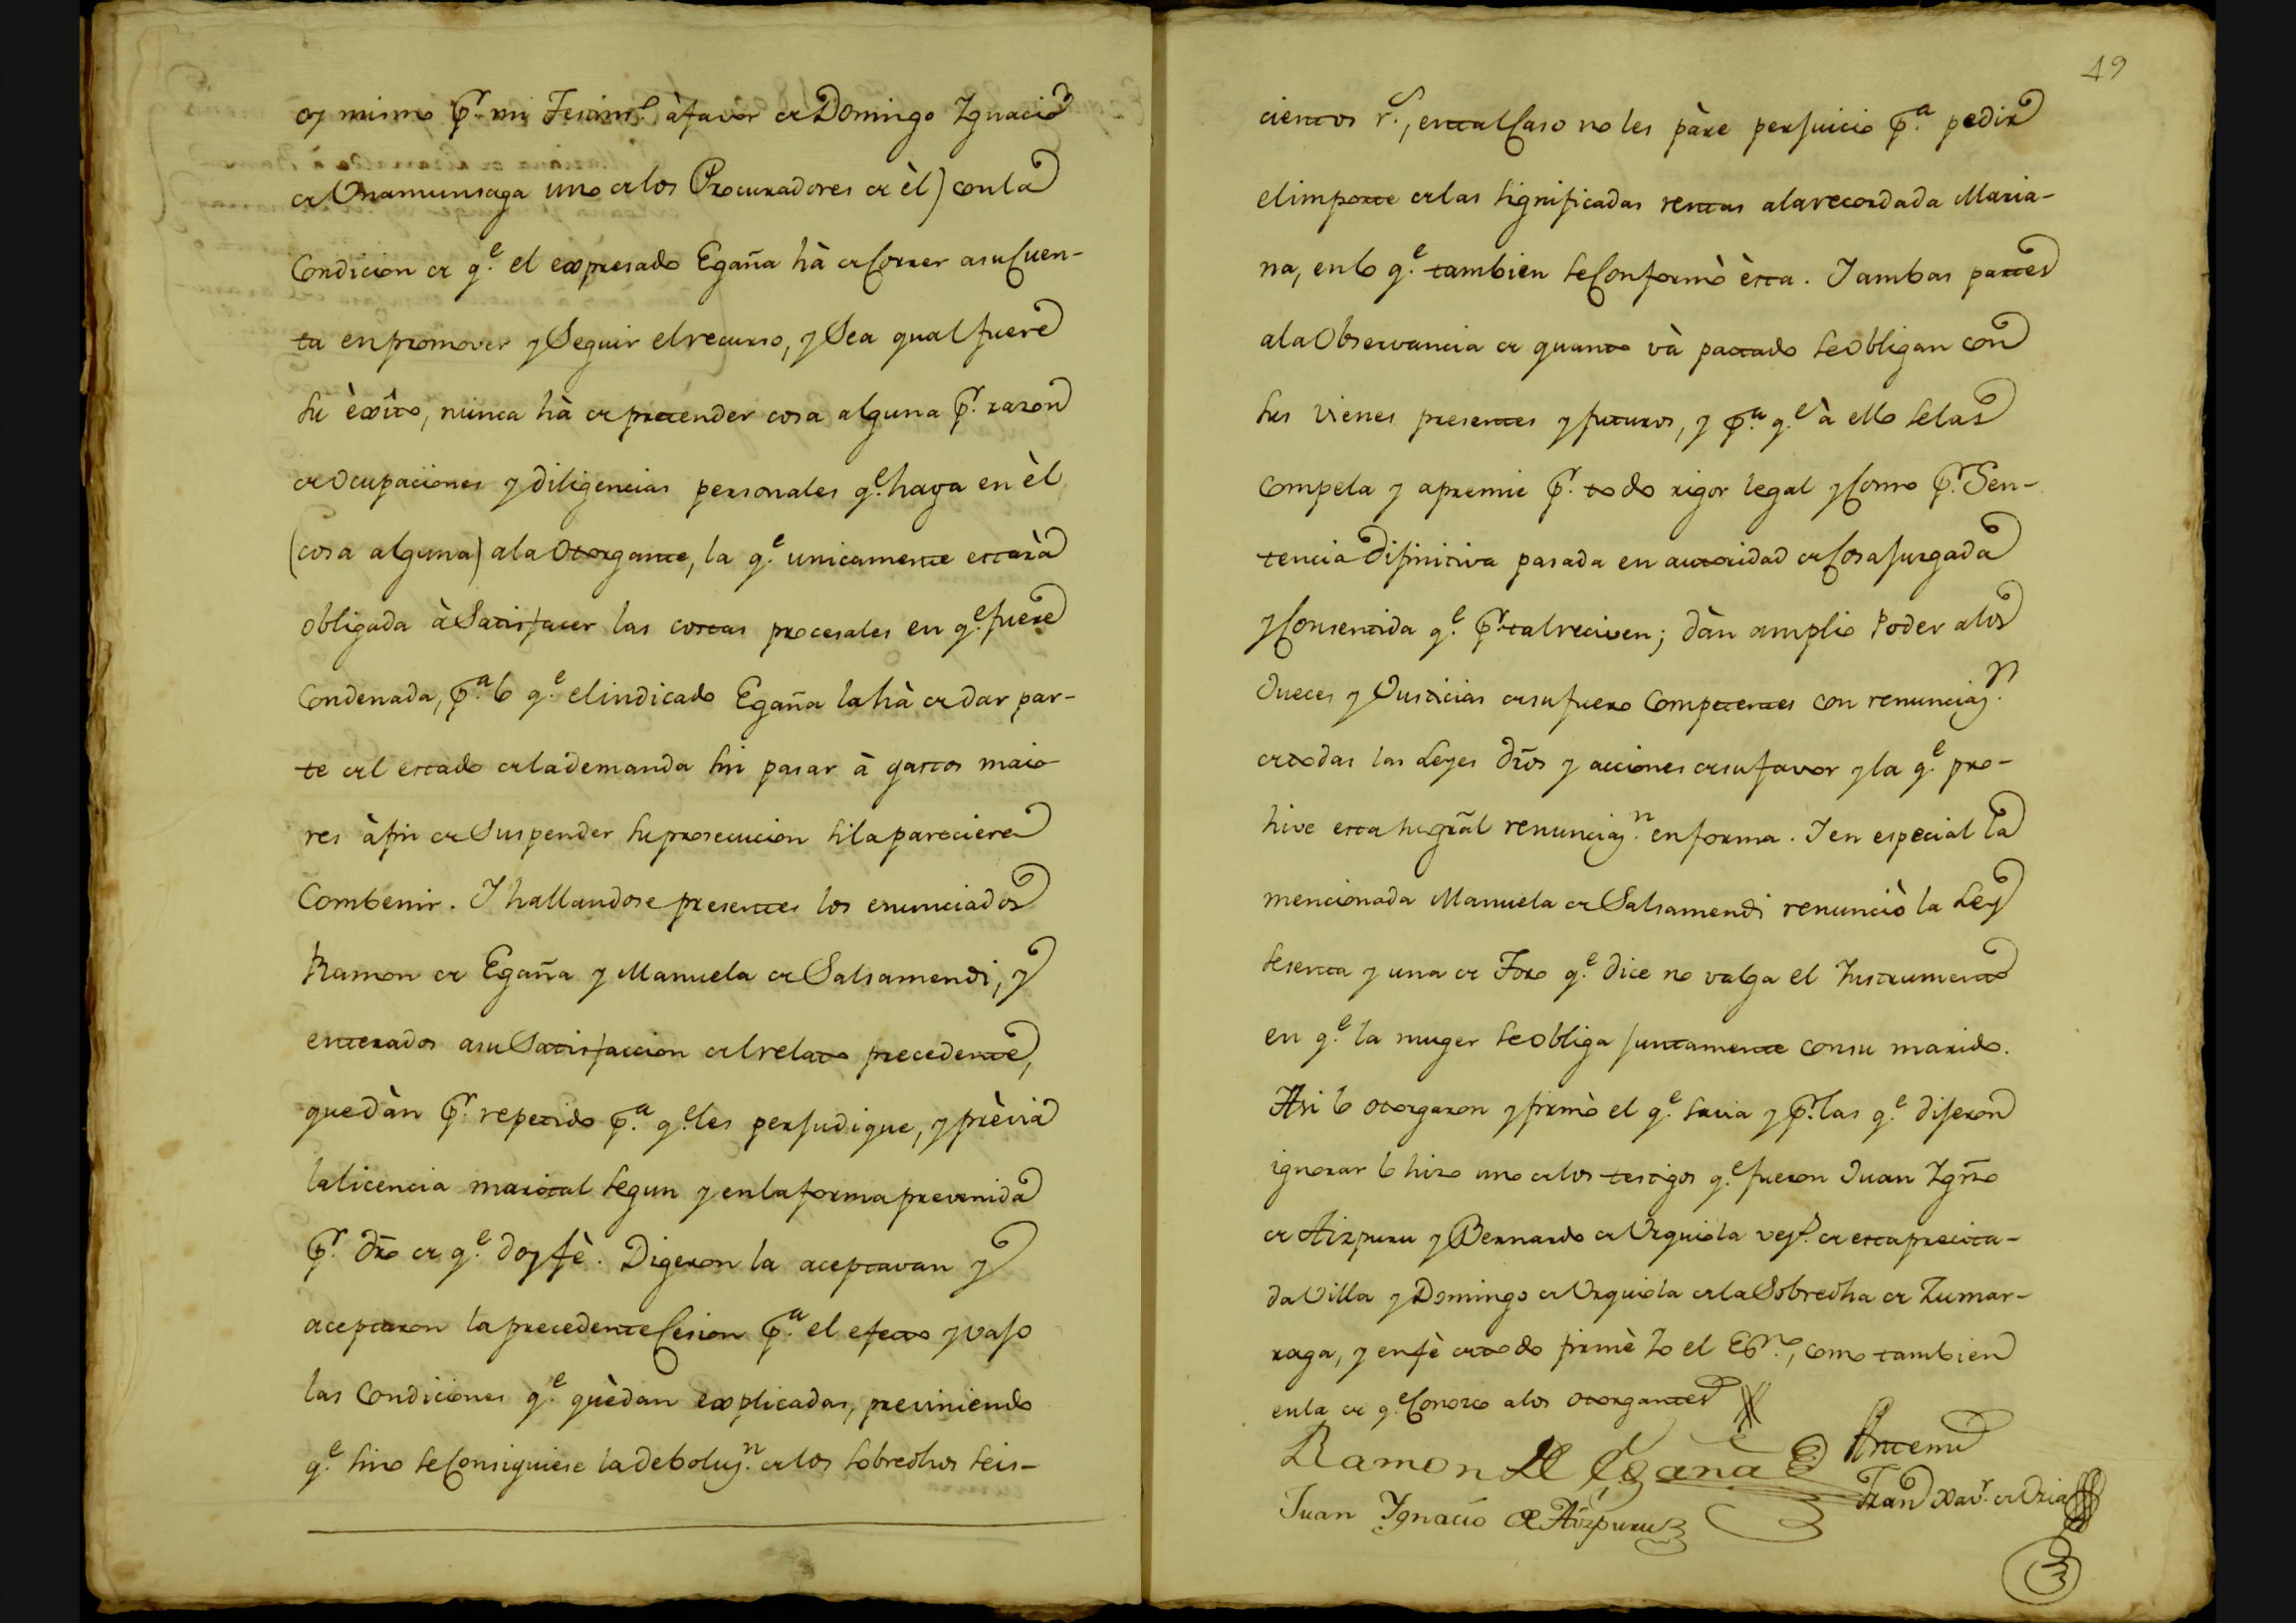 oy mismo pr. mi Testimo. à favor de Domingo Ygnacio
de Unamunsaga uno de los Procuradores de èl) con la
Condicion de qe. el expresado Egaña hà de Correr a su Cuen-
ta en promover y Seguir el recurso, y Sea qual fuere
su èxito, nunca hà de pretender cosa alguna pr. razon
de Ocupaciones y diligencias personales qe. haga en èl
(cosa alguna) a la Otorgante, la qe. unicamente estarà
obligada à Satisfacer las costas procesales en qe. fuere
Condenada, pa. lo qe. el indicado Egaña la hà de dar par-
te del estado de la demanda sin pasar à gastos maio-
res à fin de Suspender su prosecucion si la pareciere
Combenir. I hallandose presentes los enunciados
Ramon de Egaña y Manuela de Salsamendi, y
enterados a su Satisfaccion del relato precedente,
quedàn pr. repetido pa. qe. les perjudique, y prèvia
la licencia marital segun y en la forma prevenida
pr. dro de qe. doy fè. Digeron la aceptavan y
aceptaron la precedente Cesion pa. el efecto y vajo
las Condiciones qe. quèdan explicadas, previniendo
qe. sino se Consiguiese la deboluzn. de los sobredhos seis-
49
cientos rs., en tal Caso no les pàre perjuicio pa. pedir
el importe de las significadas rentas a la recordada Maria-
na, en lo qe. tambien se Conformò èsta. I ambas partes
a la Observancia de quanto và pactado se Obligan con
sus vienes presentes y futuros, y pa. qe. à ello se las
compela y apremie pr. todo rigor legal y Como pr. Sen-
tencia Difinitiva pasada en autoridad de Cosa Juzgada
y Consentida qe. pr. tal reciven; dàn amplio Poder a los
Jueces y Justicias de su fuero Competentes con renunciazn.
de todas las Leyes dros y acciones de su favor y la qe. pro-
hive esta su gral renunciazn. en forma. I en especial la
mencionada Manuela de Salsamendi renunciò la Ley
sesenta y una de Toro qe. dice no valga el Instrumento
en qe. la muger se obliga juntamente con su marido.
Asi lo otorgaron y firmò el qe. savia y pr. las qe. dijeron
ignorar lo hizo uno de los testigos qe. fueron Juan Ygno
de Aizpuru y Bernardo de Urquiola vezs. de esta precita-
da Villa y Domingo de Urquiola de la Sobredha de Zumar-
raga, y en fè de todo firmè Yo el Esno., como tambien
en la de qe. Conozco a los otorgantes
Ramon de Egaña
Antemi
Juan Ygnacio de Aizpuru
Fran Xavr. de Uria